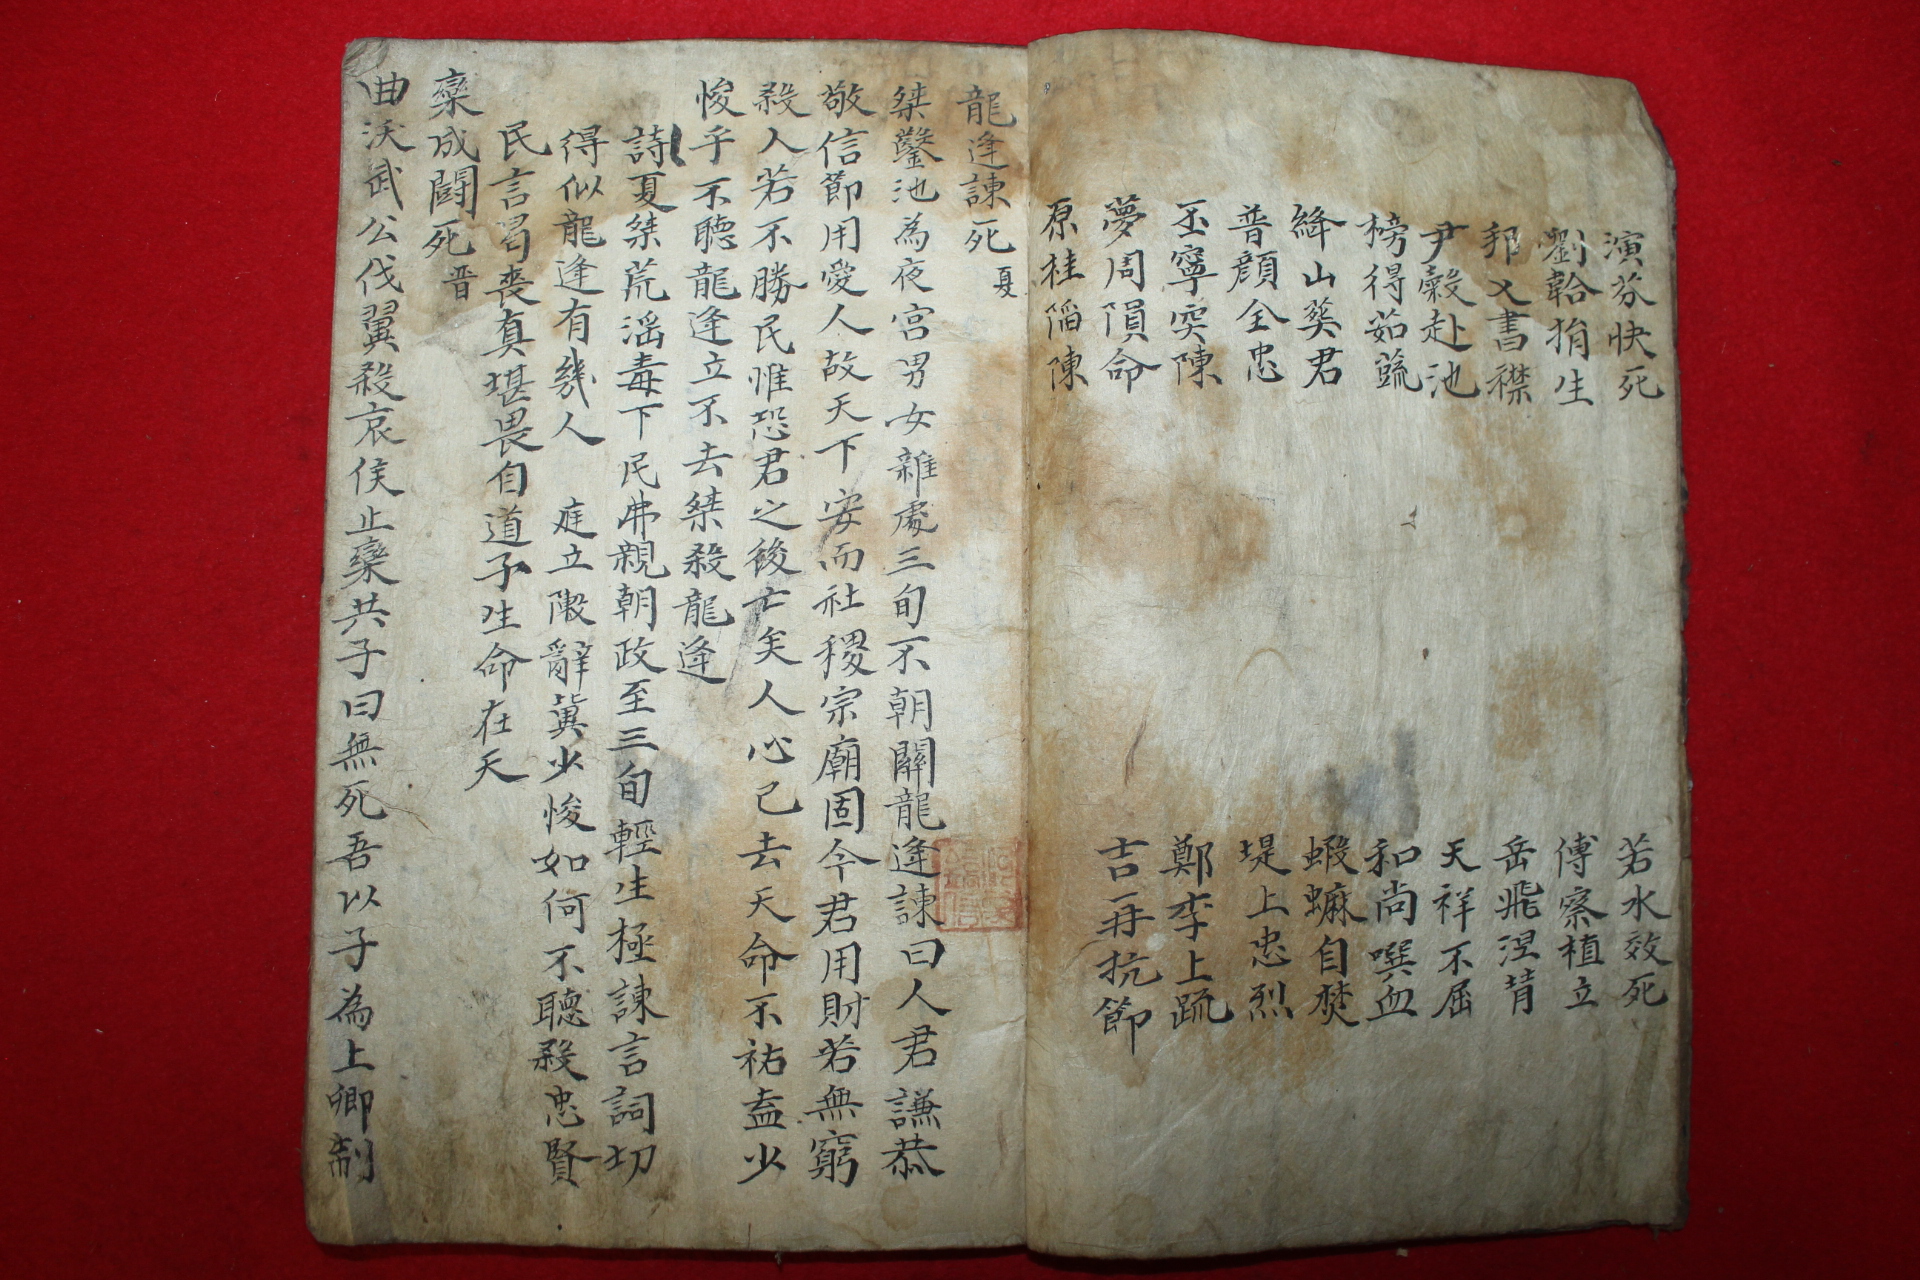 演芬快死
若水效死
劉韐捐生
傅察植立
邦乂書襟
岳飛涅背
尹穀赴池
天祥不屈
榜得茹蔬
和尚噀血
絳山葬君
蝦蟆自焚
普顔全忠
堤上忠烈
丕寧突陳
鄭李上疏
夢周隕命
吉再抗節
原桂陷陳
龍逢諫死 夏
桀鑿池為夜宮男女雜處三旬不朝關龍逢諫曰人君謙恭
敬信節用愛人故天下安而社稷宗廟固今君用財若無窮
殺人若不勝民惟恐君之後亡矣人心已去天命不祐盍少
悛乎不聽龍逢立不去桀殺龍逢
詩夏桀荒淫毒下民弗親朝政至三旬輕生極諫言詞切
得似龍逢有幾人 庭立陳辭冀少悛如何不聽殺忠賢
民言曷喪真堪畏自道予生命在天
欒成鬪死 晋
曲沃武公伐翼殺哀侯止欒共子曰無死吾以子為上卿制